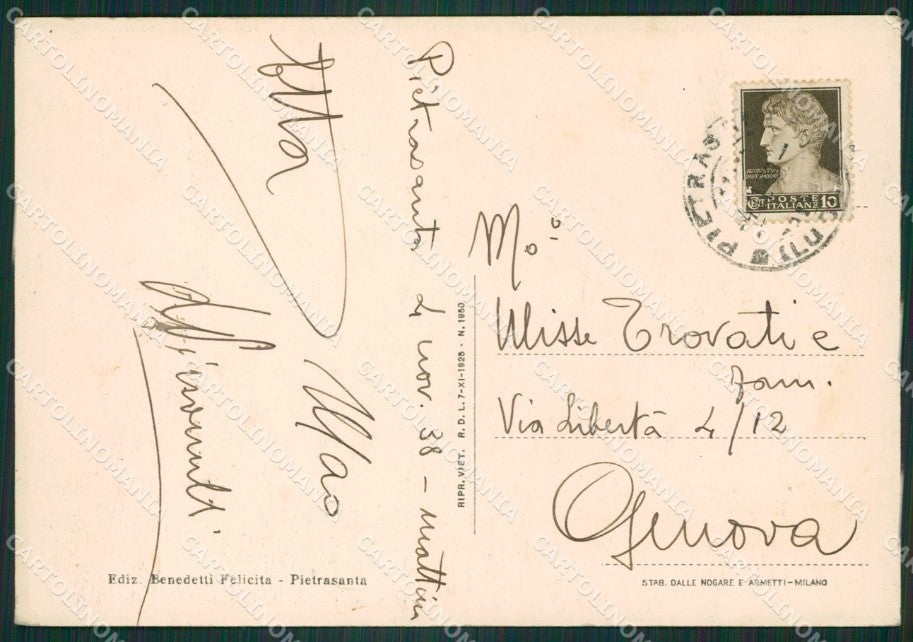 Pietrasanta 4 nov. 38 - mattin
Ugo
RIPR. VIET. R. D. L. 7-XI-1925 - N. 1950
AVGVSTVS
IMPERATOR
CENT. POSTE ITALIANE 10
PIETRASANTA
(LU
Mo
Ulisse Trovati e
fam.
Via Libertà 4/12
Genova
Ediz. Benedetti Felicita - Pietrasanta
STAB. DALLE NOGARE E ARMETTI-MILANO
CARTOLINOMANIA